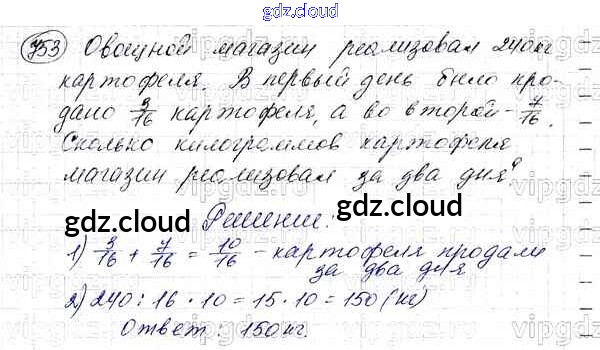 gdz.cloud
753 Овощной магазин реализовал 240 кг
картофеля. В первый день было про-
дано 3/16 картофеля, а во второй - 7/16.
Сколько килограммов картофеля
магазин реализовал за два дня?
gdz.cloud Решение: gdz.cloud
1) 3/16 + 7/16 = 10/16 - картофеля продали
за два дня
2) 240 : 16 · 10 = 15 · 10 = 150 (кг)
Ответ: 150 кг.